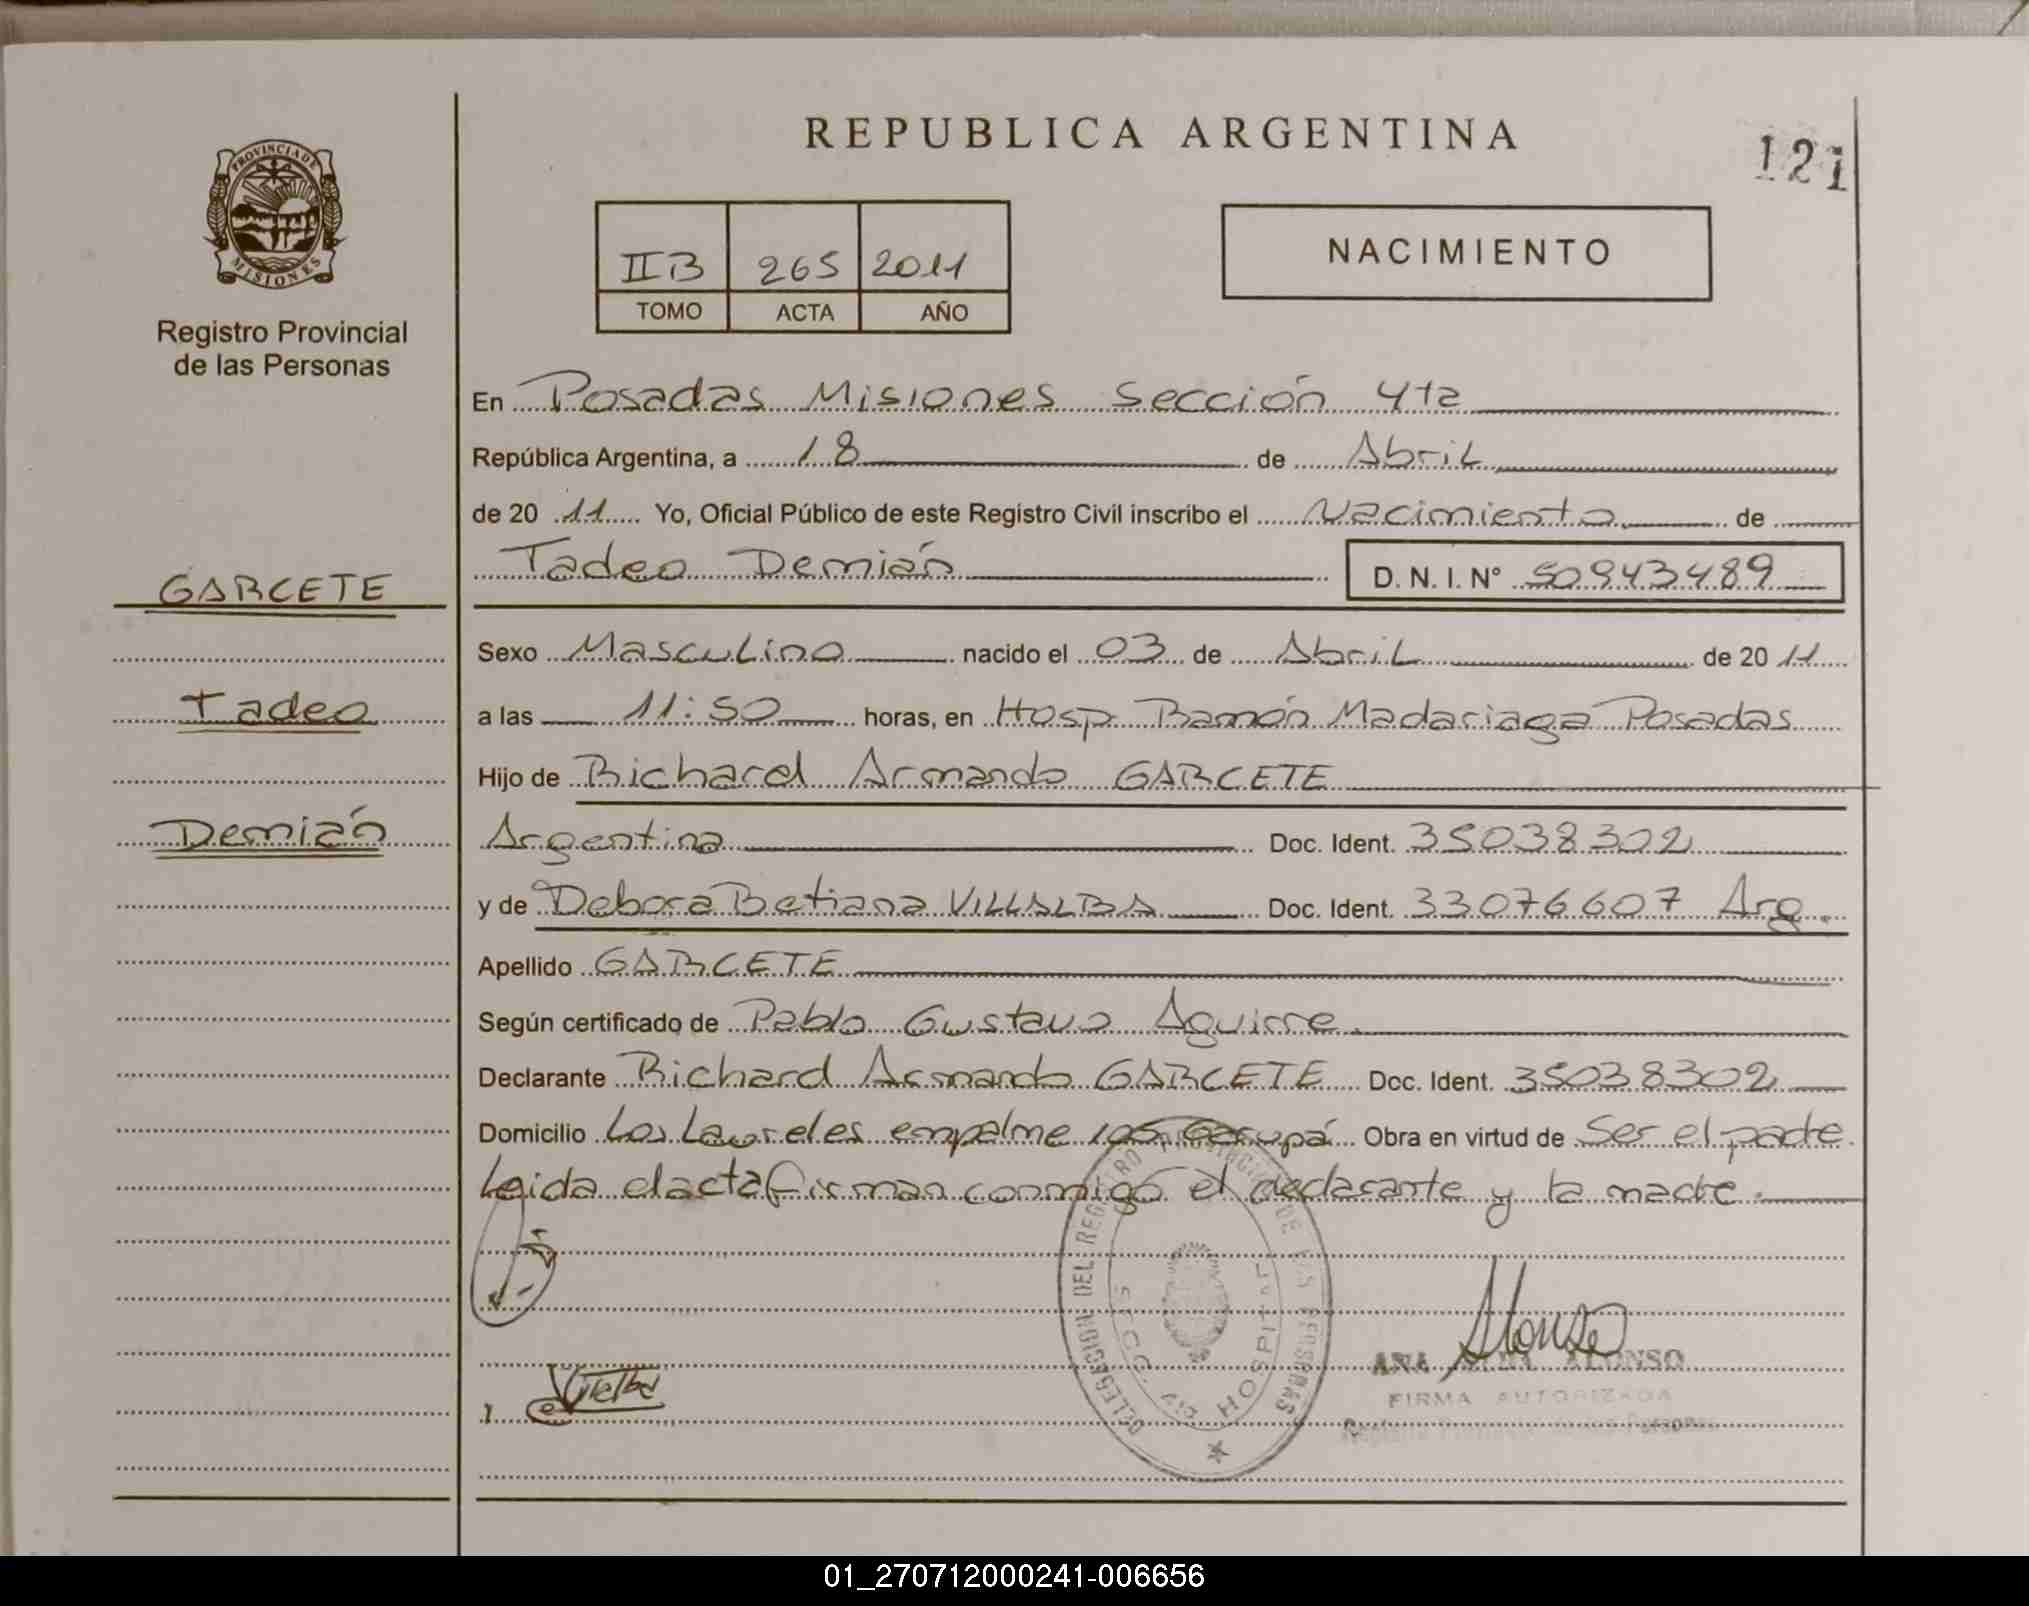 REPUBLICA ARGENTINA
121
PROVINCIA DE
MISIONES
Registro Provincial
de las Personas
IIB 265 2011
TOMO ACTA AÑO
NACIMIENTO
En Posadas Misiones Sección 4ta
República Argentina, a 18 de Abril
de 20 11 Yo, Oficial Público de este Registro Civil inscribo el Nacimiento de
Tadeo Demián D. N. I. N° 50943489
GARCETE
Tadeo
Demián
Sexo Masculino nacido el 03 de Abril de 20 11
a las 11:50 horas, en Hosp. Ramón Madariaga Posadas
Hijo de Richard Armando GARCETE
Argentina Doc. Ident. 35038302
y de Debora Betiana VILLALBA Doc. Ident. 33076607 Arg.
Apellido GARCETE
Según certificado de Pablo Gustavo Aguirre.
Declarante Richard Armando GARCETE Doc. Ident. 35038302
Domicilio Los Laureles empalme 105 Garupá Obra en virtud de Ser el padre
Leida el acta firman conmigo el declarante y la madre.
DELEGACION DEL REGISTRO PROVINCIAL DE LAS PERSONAS
SECC. 4ta HOSPITAL
Alonso
ANA ALONSO
FIRMA AUTORIZADA
Registro Provincial de las Personas
Villalba
01_270712000241-006656